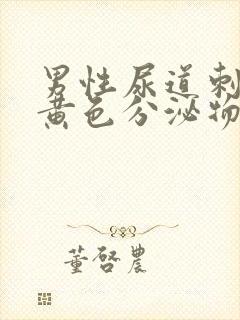 男性尿道刺
黄色分泌物
董啓農